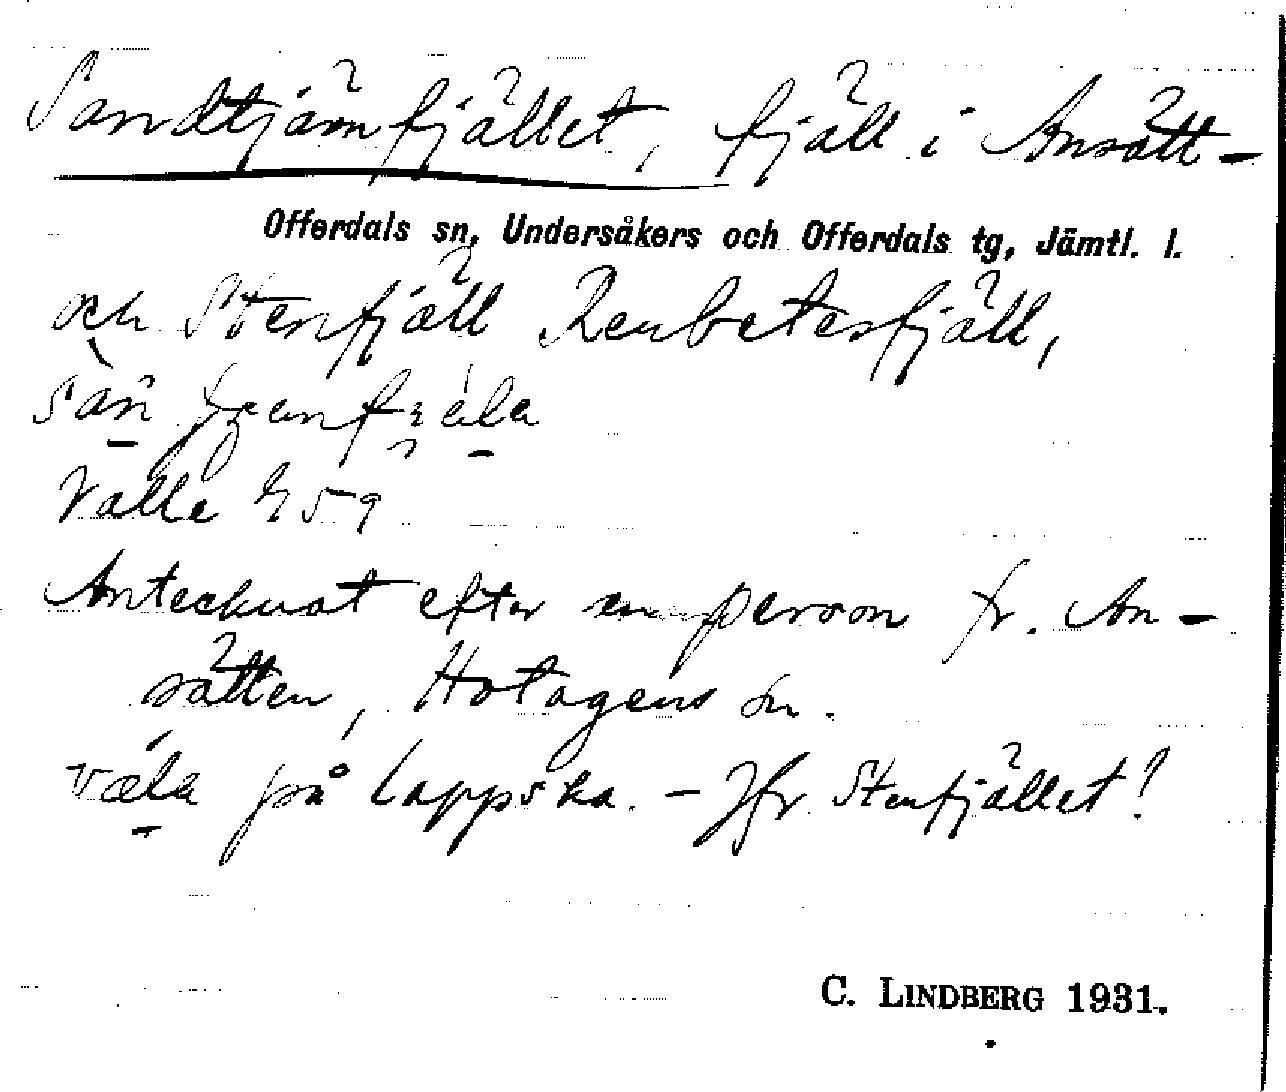 Sandtjärnfjället, fjäll i Ansätt-
Offerdals sn, Undersåkers och Offerdals tg, Jämtl. l.
och Stenfjäll Renbetesfjäll,
Välle 459
Antecknat efter en person fr. An-
sätten, Hotagens sn.
væla på lappska. - Jfr Stenfjället!
C. LINDBERG 1931.